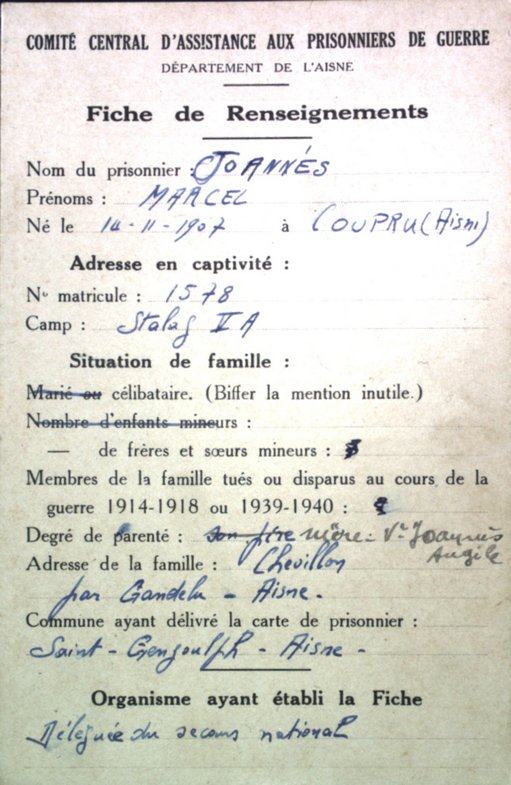 COMITÉ CENTRAL D'ASSISTANCE AUX PRISONNIERS DE GUERRE
DÉPARTEMENT DE L'AISNE
Fiche de Renseignements
Nom du prisonnier : JOANNÉS
Prénoms : MARCEL
Né le 14-11-1907 à COUPRU (Aisne)
Adresse en captivité :
N° matricule : 1578
Camp : Stalag II A
Situation de famille :
Marié ou célibataire. (Biffer la mention inutile.)
Nombre d'enfants mineurs :
— de frères et sœurs mineurs :
Membres de la famille tués ou disparus au cours de la
guerre 1914-1918 ou 1939-1940 :
Degré de parenté : son père mère - Ve Joannès
Angèle
Adresse de la famille : Chevillon
par Gandelu - Aisne -
Commune ayant délivré la carte de prisonnier :
Saint-Gengoulph - Aisne -
Organisme ayant établi la Fiche
Déléguée du secours national